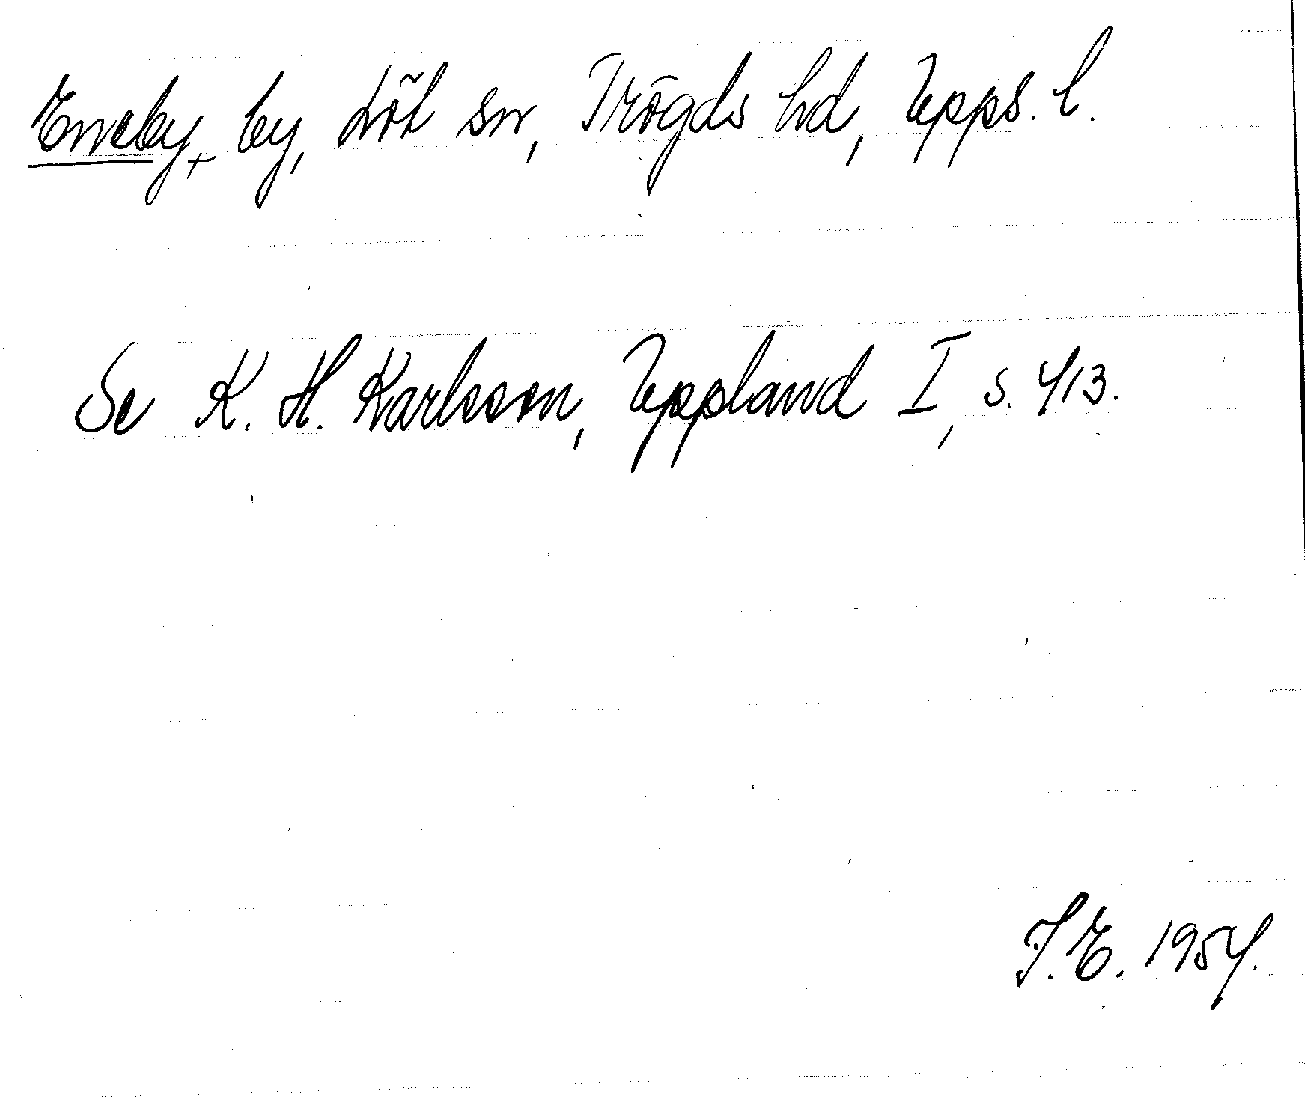 Emeby, by, Löt sn, Trögds hd, Upps. l.
Se K. H. Karlsson, Uppland I, s. 413.
J.E. 1954.